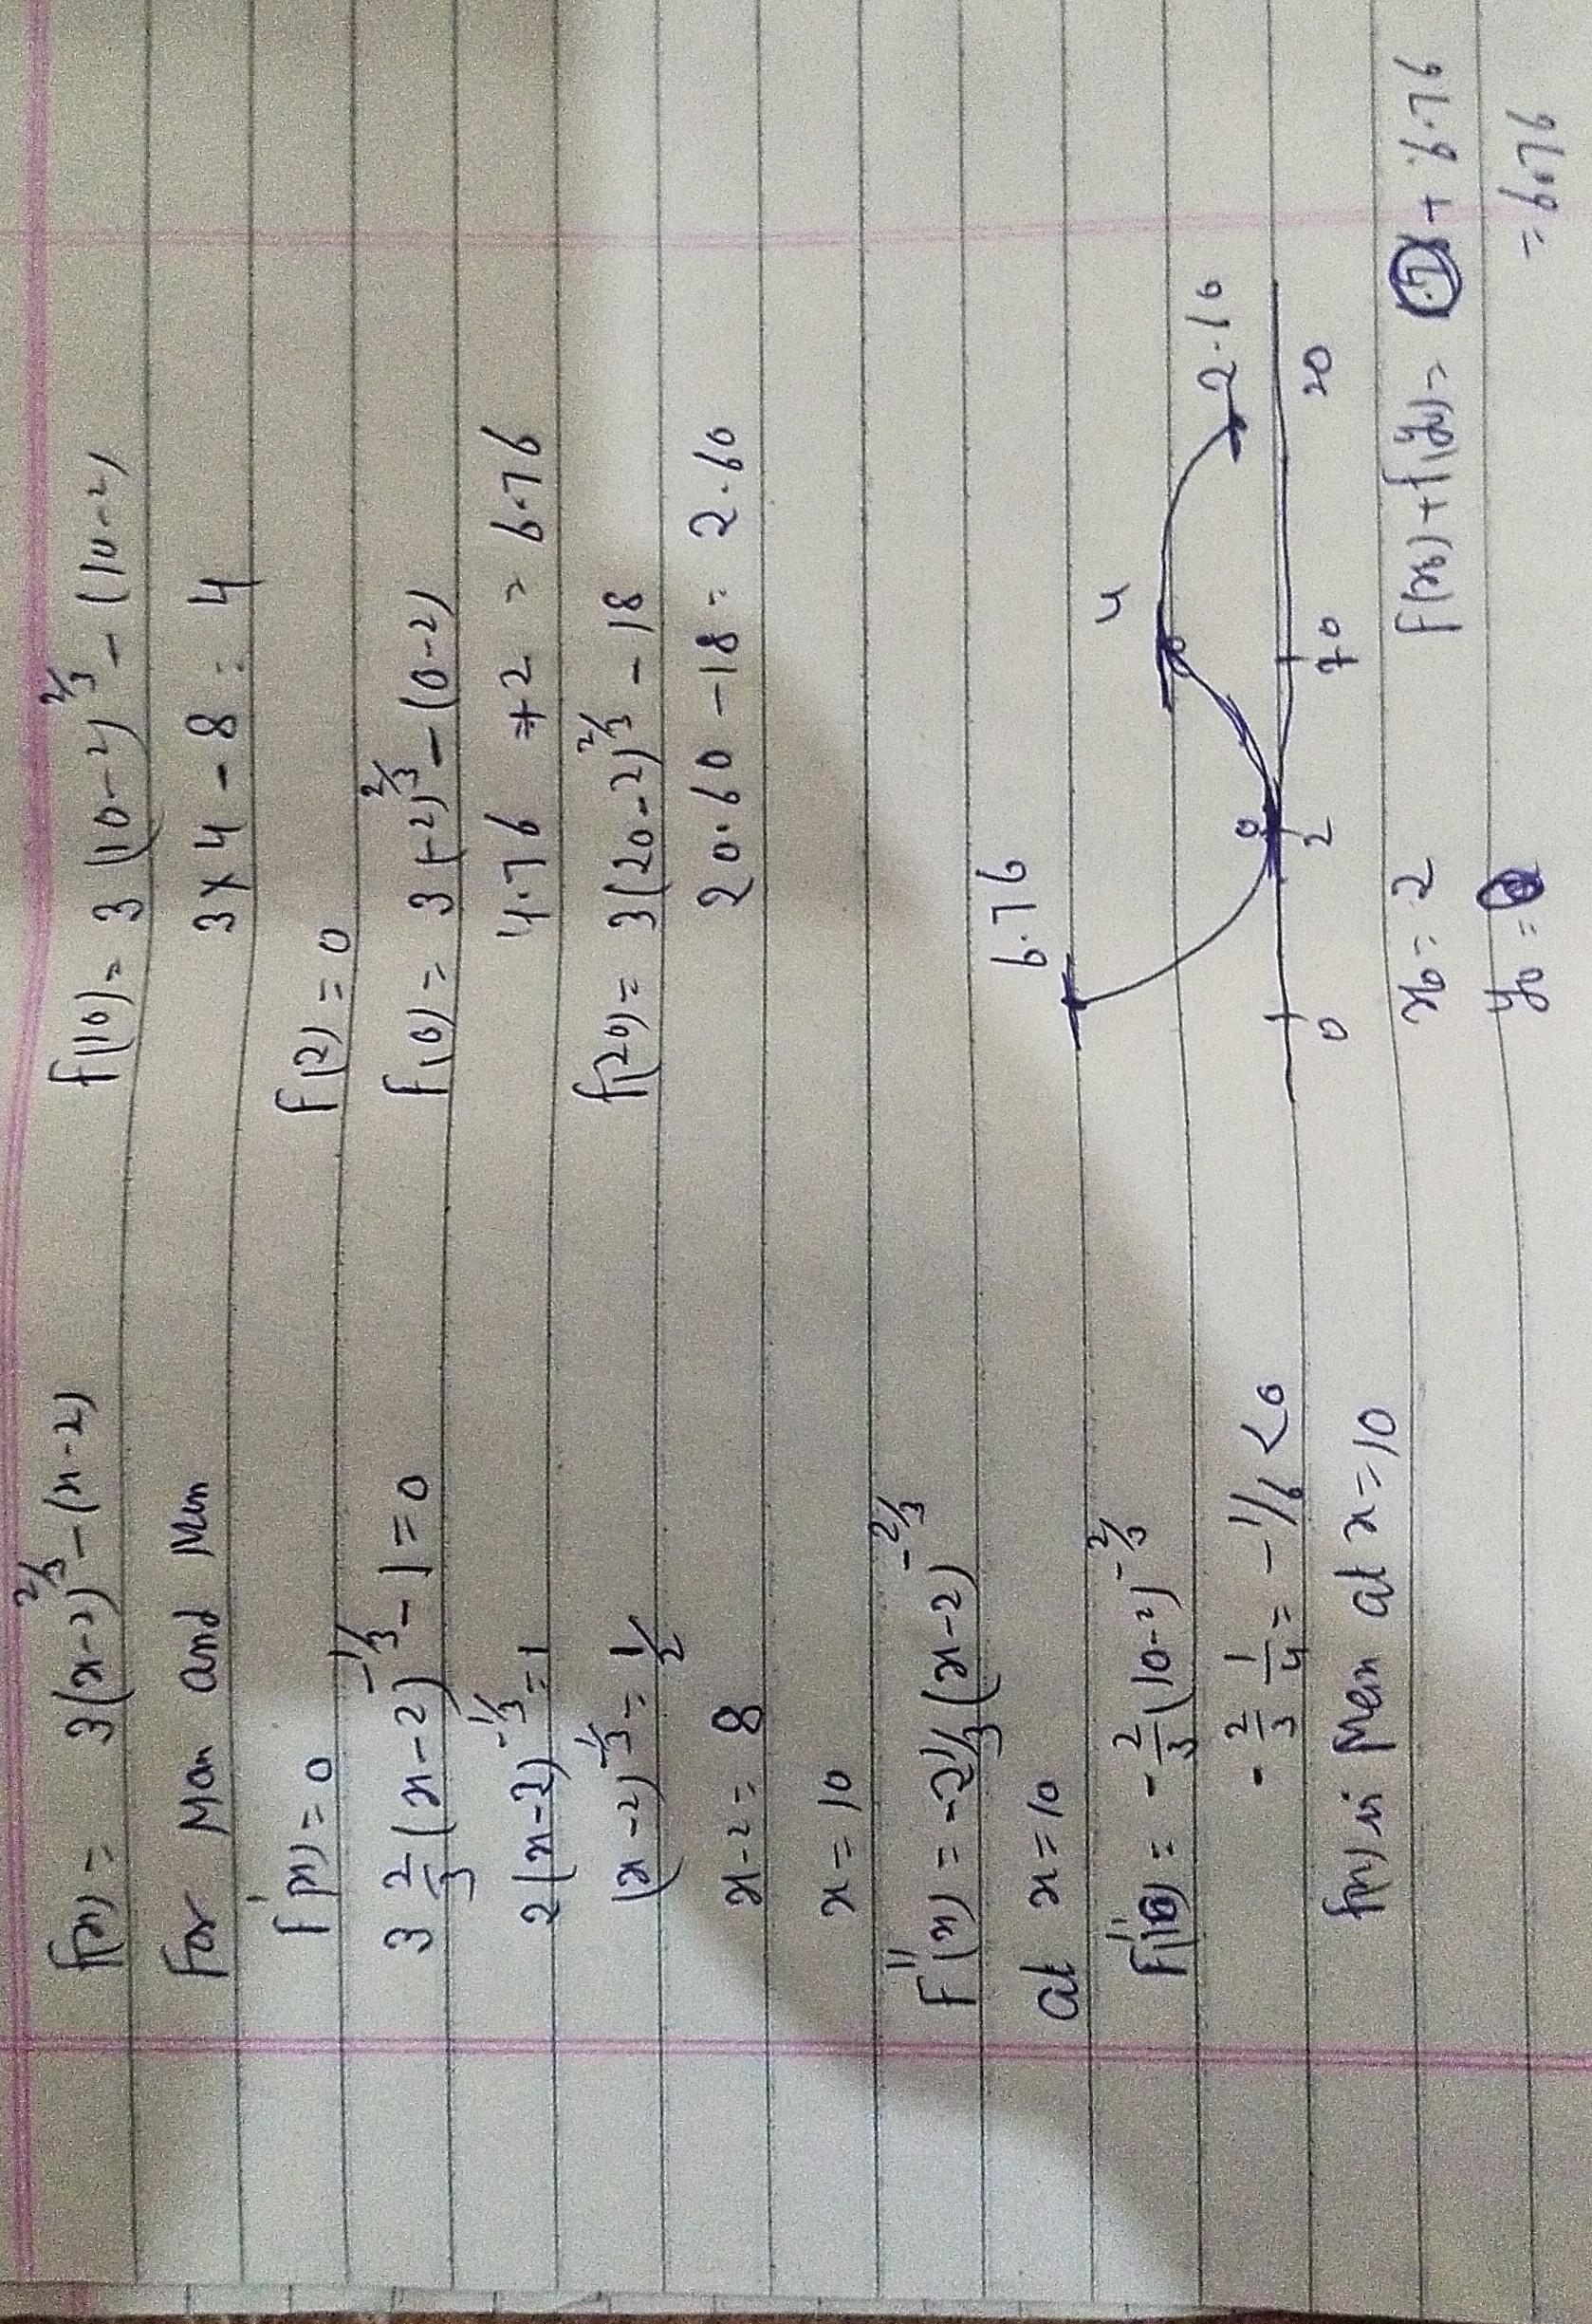 f(x) = 3(x-2)^2/3 - (x-2)
For Max and Min
f'(x) = 0
3 2/3 (x-2)^-1/3 - 1 = 0
2(x-2)^-1/3 = 1
(x-2)^-1/3 = 1/2
x-2 = 8
x = 10
f''(x) = -2/3 (x-2)^-2/3
at x = 10
f''(10) = -2/3 (10-2)^-2/3
- 2/3 1/4 = -1/6 < 0
f(x) is Max at x = 10
f(10) = 3(10-2)^2/3 - (10-2)
3 x 4 - 8 = 4
f(2) = 0
f(0) = 3(-2)^2/3 - (0-2)
4.76 + 2 = 6.76
f(20) = 3(20-2)^2/3 - 18
20.60 - 18 = 2.60
6.76
4
0
2.10
0 2 10 20
x0 = 2
y0 = 0
= 6.76